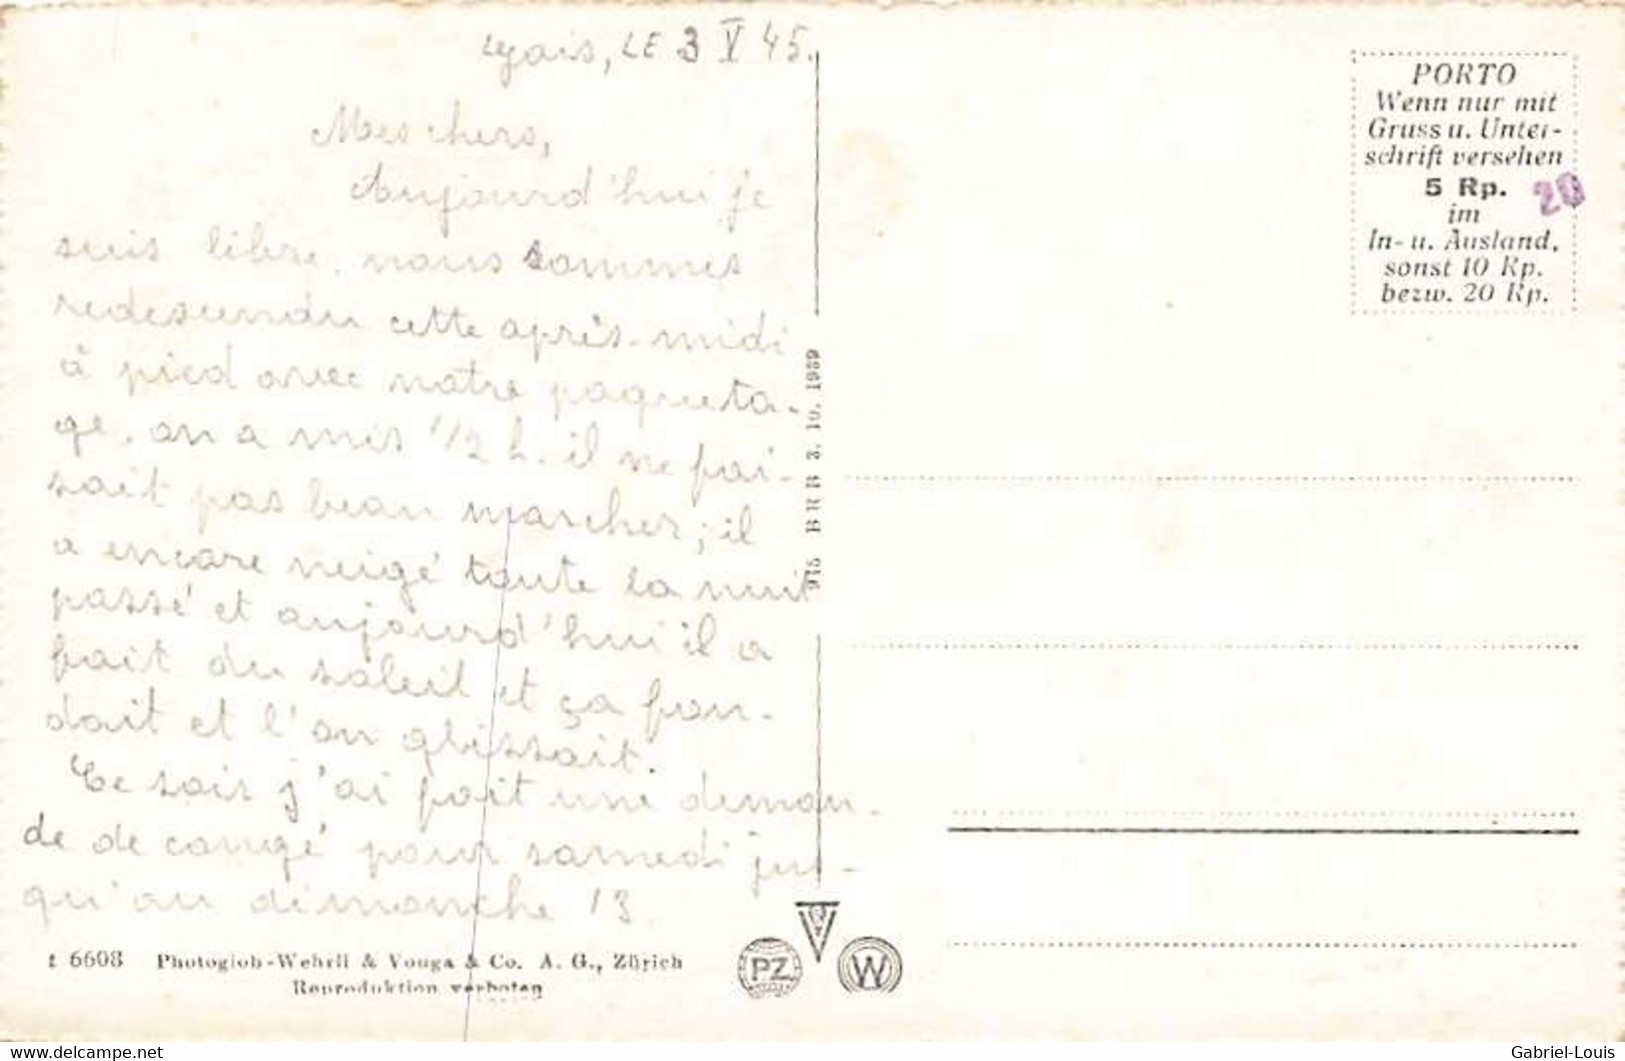 LE 3 V 45.
Mes chers,
Aujourd'hui je
suis libre, nous sommes
redescendu cette après-midi
à pied avec notre paqueta-
ge. on a mis 1/2 h. il ne fai-
sait pas beau marcher; il
a encore neigé toute la nuit
passé et aujourd'hui il a
fait du soleil et ça fon-
dait et l'on glissait.
Ce soir j'ai fait une deman-
de de congé pour samedi jus-
qu'au dimanche 13.
t 6608 Photoglob-Wehrli & Vouga & Co. A. G., Zürich
Reproduktion verboten
945 BRB 3. 10. 1939
PZ
W
PORTO
Wenn nur mit
Gruss u. Unter-
schrift versehen
5 Rp.
20
im
In- u. Ausland,
sonst 10 Rp.
bezw. 20 Rp.
www.delcampe.net
Gabriel-Louis